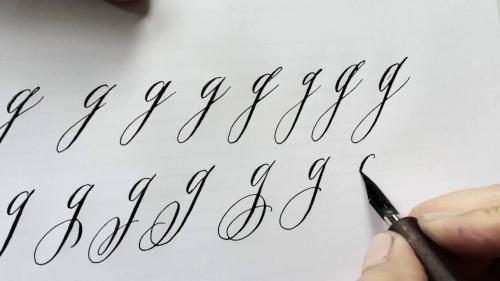 g g g g g g g g
g g g g g g